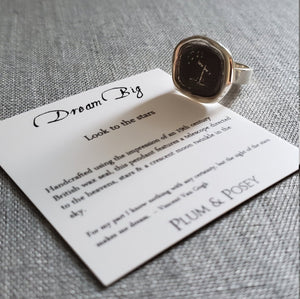 Dream Big
Look to the stars
Handcrafted using the impression of an 19th century
British wax seal, this pendant features a telescope directed
to the heavens, stars & a crescent moon twinkle in the
sky.
For my part I know nothing with any certainty, but the sight of the stars
makes me dream. - Vincent Van Gogh
PLUM & POSEY